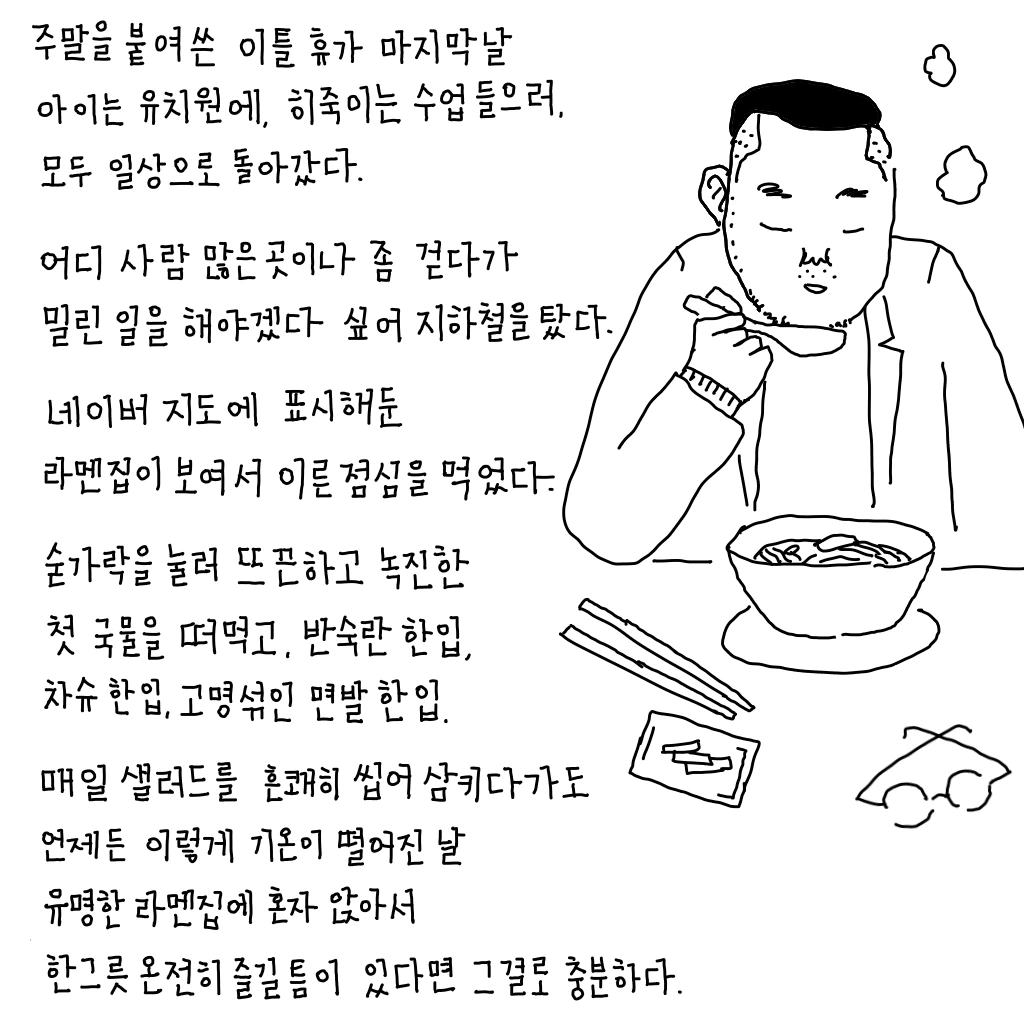 주말을 붙여쓴 이틀 휴가 마지막날
아이는 유치원에, 히죽이는 수업 들으러,
모두 일상으로 돌아갔다.
어디 사람 많은곳이나 좀 걷다가
밀린 일을 해야겠다 싶어 지하철을 탔다.
네이버 지도에 표시해둔
라멘집이 보여서 이른 점심을 먹었다.
숟가락을 눌러 뜨끈하고 녹진한
첫 국물을 떠먹고, 반숙란 한입,
차슈 한입, 고명섞인 면발 한입.
매일 샐러드를 흔쾌히 씹어 삼키다가도
언제든 이렇게 기온이 떨어진 날
유명한 라멘집에 혼자 앉아서
한그릇 온전히 즐길 틈이 있다면 그걸로 충분하다.